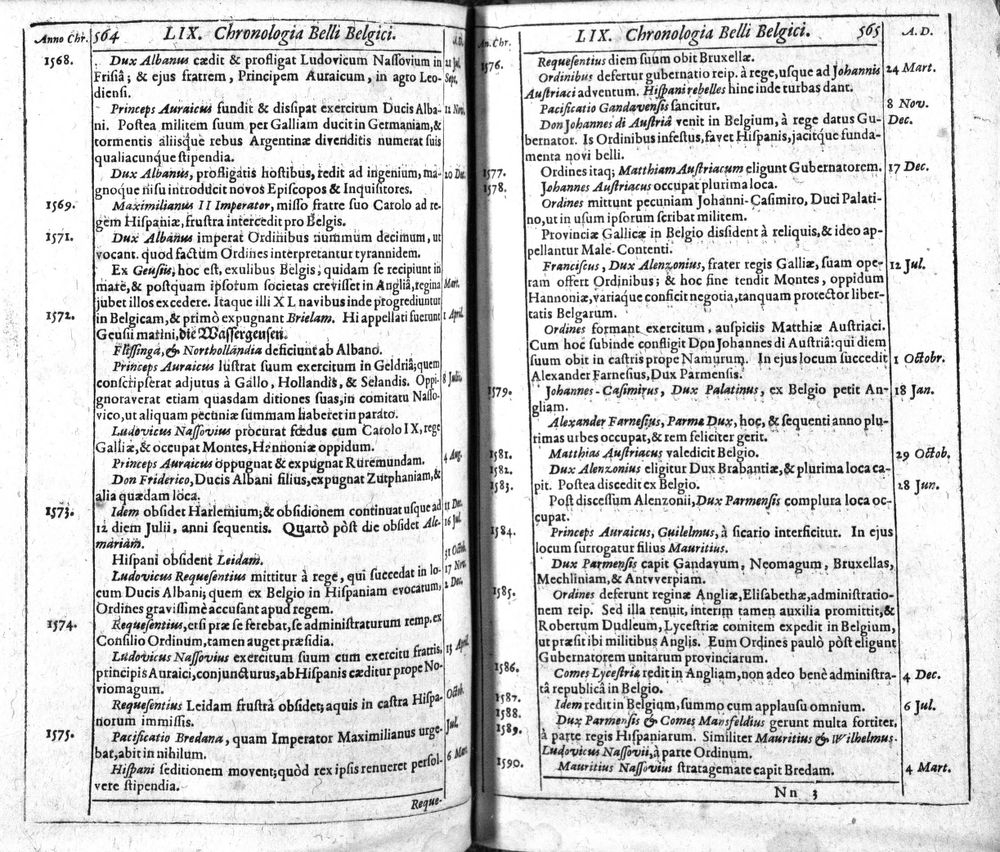 Anno Chr. 564 LIX. Chronologia Belli Belgici. A.D.
1568. Dux Albanus cædit & profligat Ludovicum Nassovium in 21 Jul.
Frisiâ; & ejus fratrem, Principem Auraicum, in agro Leo- Sept.
diensi.
Princeps Auraicus fundit & dissipat exercitum Ducis Alba- 12 Nov.
ni. Postea militem suum per Galliam ducit in Germaniam, &
tormentis aliisque rebus Argentinæ divenditis numerat suis
qualiacunque stipendia.
Dux Albanus, profligatis hostibus, redit ad ingenium, ma- 20 Dec.
gnoque nisu introducit novos Episcopos & Inquisitores.
1569. Maximilianus II Imperator, misso fratre suo Carolo ad re-
gem Hispaniæ, frustra intercedit pro Belgis.
1571. Dux Albanus imperat Ordinibus nummum decimum, ut
vocant. quod factum Ordines interpretantur tyrannidem.
Ex Geusiis, hoc est, exulibus Belgis, quidam se recipiunt in
mare, & postquam ipsorum societas crevisset in Angliâ, regina Mart.
jubet illos excedere. Itaque illi XL navibus inde progrediuntur
1572. in Belgicam, & primò expugnant Brielam. Hi appellati fuerunt 1 April.
Geusii marini, die Wassergeusen.
Flissinga, & Northollandia deficiunt ab Albano.
Princeps Auraicus lustrat suum exercitum in Geldriâ; quem
conscripserat adjutus à Gallo, Hollandis, & Selandis. Oppi- 8 Julii.
gnoraverat etiam quasdam ditiones suas, in comitatu Nasso-
vico, ut aliquam pecuniæ summam haberet in parato.
Ludovicus Nassovius procurat fœdus cum Carolo IX, rege
Galliæ, & occupat Montes, Hennoniæ oppidum.
Princeps Auraicus oppugnat & expugnat Ruremundam. 4 Aug.
Don Friderico, Ducis Albani filius, expugnat Zutphaniam, &
alia quædam loca.
1573. Idem obsidet Harlemium; & obsidionem continuat usque ad 11 Dec.
12 diem Julii, anni sequentis. Quartò pòst die obsidet Alc- 16 Jul.
mariam.
Hispani obsident Leidam. 31 Octob.
Ludovicus Requesentius mittitur à rege, qui succedat in lo- 17 Nov.
cum Ducis Albani; quem ex Belgio in Hispaniam evocatum, 2 Dec.
Ordines gravissimè accusant apud regem.
1574. Requesentius, etsi præ se ferebat, se administraturum remp. ex
Consilio Ordinum, tamen auget præsidia.
Ludovicus Nassovius exercitum suum cum exercitu fratris, 13 April.
principis Auraici, conjuncturus, ab Hispanis cæditur prope No-
viomagum.
Requesentius Leidam frustrà obsidet; aquis in castra Hispa- Octob.
norum immissis.
1575. Pacificatio Bredana, quam Imperator Maximilianus urge- Jul.
bat, abit in nihilum.
Hispani seditionem movent; quòd rex ipsis renueret persol- 6 Mart.
vere stipendia.
Reque-
An. Chr. LIX. Chronologia Belli Belgici. 565 A.D.
1576. Requesentius diem suum obit Bruxellæ.
Ordinibus defertur gubernatio reip. à rege, usque ad Johannis 24 Mart.
Austriaci adventum. Hispani rebelles hinc inde turbas dant.
Pacificatio Gandavensis sancitur. 8 Nov.
Don Johannes di Austriâ venit in Belgium, à rege datus Gu- Dec.
bernator. Is Ordinibus infestus, favet Hispanis, jacitque funda-
menta novi belli.
1577. Ordines itaq; Matthiam Austriacum eligunt Gubernatorem. 17 Dec.
1578. Johannes Austriacus occupat plurima loca.
Ordines mittunt pecuniam Johanni-Casimiro, Duci Palati-
no, ut in usum ipsorum scribat militem.
Provinciæ Gallicæ in Belgio dissident à reliquis, & ideo ap-
pellantur Male-Contenti.
Franciscus, Dux Alenzonius, frater regis Galliæ, suam ope- 12 Jul.
ram offert Ordinibus; & hoc fine tendit Montes, oppidum
Hannoniæ, variaque conficit negotia, tanquam protector liber-
tatis Belgarum.
Ordines formant exercitum, auspiciis Matthiæ Austriaci.
Cum hoc subinde confligit Don Johannes di Austriâ: qui diem
suum obit in castris prope Namurum. In ejus locum succedit 1 Octobr.
Alexander Farnesius, Dux Parmensis.
1579. Johannes-Casimirus, Dux Palatinus, ex Belgio petit An- 18 Jan.
gliam.
Alexander Farnesius, Parmæ Dux, hoc, & sequenti anno plu-
rimas urbes occupat, & rem feliciter gerit.
1581. Matthias Austriacus valedicit Belgio. 29 Octob.
1582. Dux Alenzonius eligitur Dux Brabantiæ, & plurima loca ca-
1583. pit. Postea discedit ex Belgio. 28 Jun.
Post discessum Alenzonii, Dux Parmensis complura loca oc-
cupat.
1584. Princeps Auraicus, Guilelmus, à sicario interficitur. In ejus
locum surrogatur filius Mauritius.
Dux Parmensis capit Gandavum, Neomagum, Bruxellas,
Mechliniam, & Antvverpiam.
1585. Ordines deferunt reginæ Angliæ, Elisabethæ, administratio-
nem reip. Sed illa renuit, interim tamen auxilia promittit, &
Robertum Dudleum, Lycestriæ comitem expedit in Belgium,
ut præsit ibi militibus Anglis. Eum Ordines paulò pòst eligunt
Gubernatorem unitarum provinciarum.
1586. Comes Lycestriæ redit in Angliam, non adeo benè administra- 4 Dec.
tâ republicâ in Belgio.
1587. Idem redit in Belgium, summo cum applausu omnium. 6 Jul.
1588. Dux Parmensis & Comes Mansfeldius gerunt multa fortiter,
1589. à parte regis Hispaniarum. Similiter Mauritius & Wilhelmus-
Ludovicus Nassovii, à parte Ordinum.
1590. Mauritius Nassovius stratagemate capit Bredam. 4 Mart.
Nn 3